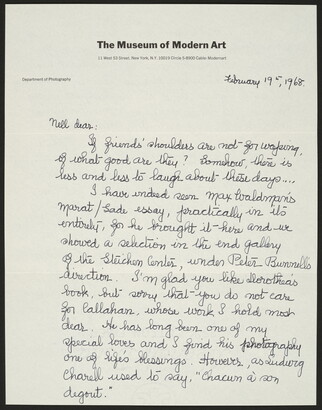 The Museum of Modern Art
11 West 53 Street, New York, N.Y. 10019 Circle 5-8900 Cable: Modernart
Department of Photography
February 19th, 1968.
Nell dear:
If friends' shoulders are not for weeping,
of what good are they? Somehow, there is
less and less to laugh about these days....
I have indeed seen Max Waldman's
Marat/Sade essay, practically in its
entirety, for he brought it here and we
showed a selection in the end gallery
of the Steichen Center, under Peter Bunnell's
direction. I'm glad you like Dorothea's
book, but sorry that you do not care
for Callahan, whose work I hold most
dear. He has long been one of my
special loves and I find his photography
one of life's blessings. However, as Ludwig
Charell used to say, "Chacun à son
degout."